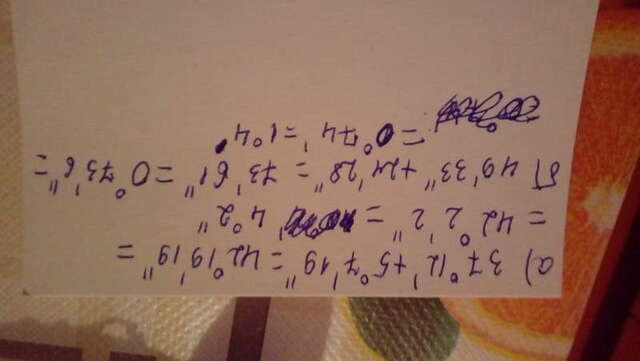 а) 37°12' + 5°7'19" = 42°19'19" =
= 42°2'2" = 4°2"
б) 49'33" + 24'28" = 73'61" = 0°73'6" =
= 0°74' = 1°4'